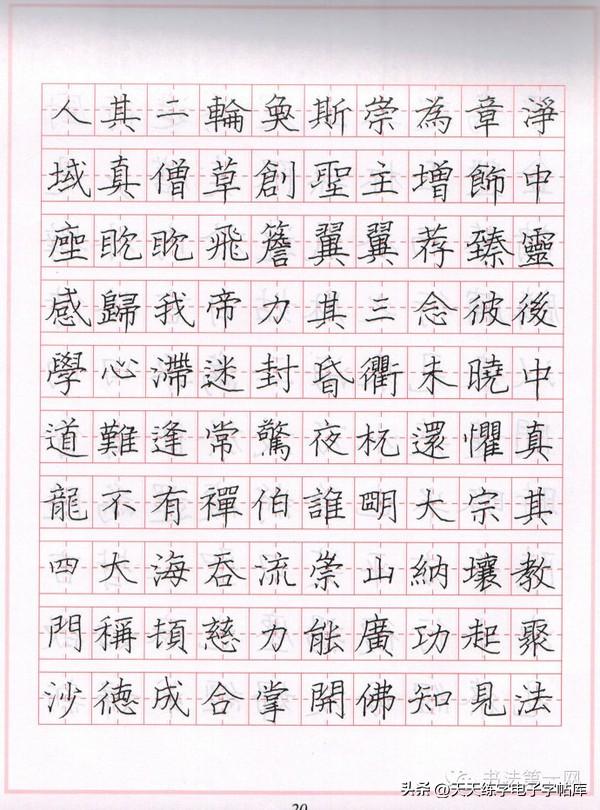 人其二輪奐斯崇為章淨
域真僧草創聖主增飾中
座眈眈飛簷翼翼荐臻靈
感歸我帝力其三念彼後
學心滯迷封昏衢未曉中
道難逢常驚夜杌還懼真
龍不有禪伯誰明大宗其
四大海吞流崇山納壤教
門稱頓慈力能廣功起聚
沙德成合掌開佛知見法
20
书法第一网
头条 @天天练字电子字帖库